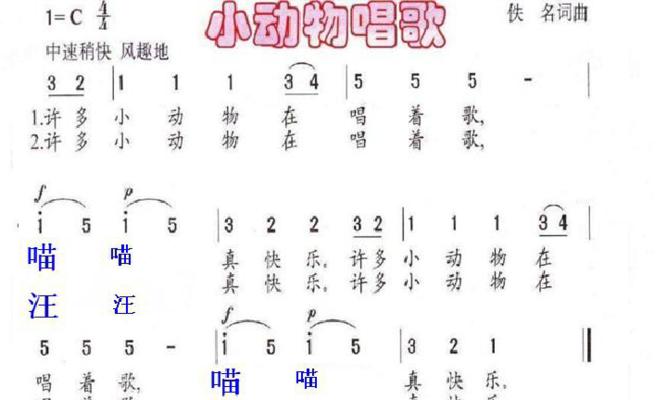 小动物唱歌
1=C 4/4 佚 名词曲
中速稍快 风趣地
3 2 | 1 1 1 3 4 | 5 5 5 - |
1.许多 小 动 物 在 唱 着 歌,
2.许多 小 动 物 在 唱 着 歌,
f p
i 5 i 5 | 3 2 2 3 2 | 1 1 1 3 4 |
喵 喵 真 快 乐。许多 小 动 物 在
汪 汪 真 快 乐。许多 小 动 物 在
f p
5 5 5 - | i 5 i 5 | 3 2 1
唱 着 歌, 喵 喵 真 快 乐。